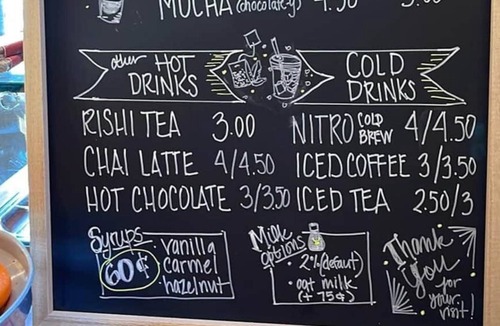 MOCHA (chocolate-y) 4.50 5.00
other HOT DRINKS
RISHI TEA 3.00
CHAI LATTE 4/4.50
HOT CHOCOLATE 3/3.50
COLD DRINKS
NITRO COLD BREW 4/4.50
ICED COFFEE 3/3.50
ICED TEA 2.50/3
Syrups
60¢
• vanilla
carmel
• hazelnut
Milk options
• 2% (defaut)
• oat milk
(+ 75¢)
Thank
you
for
your
visit!